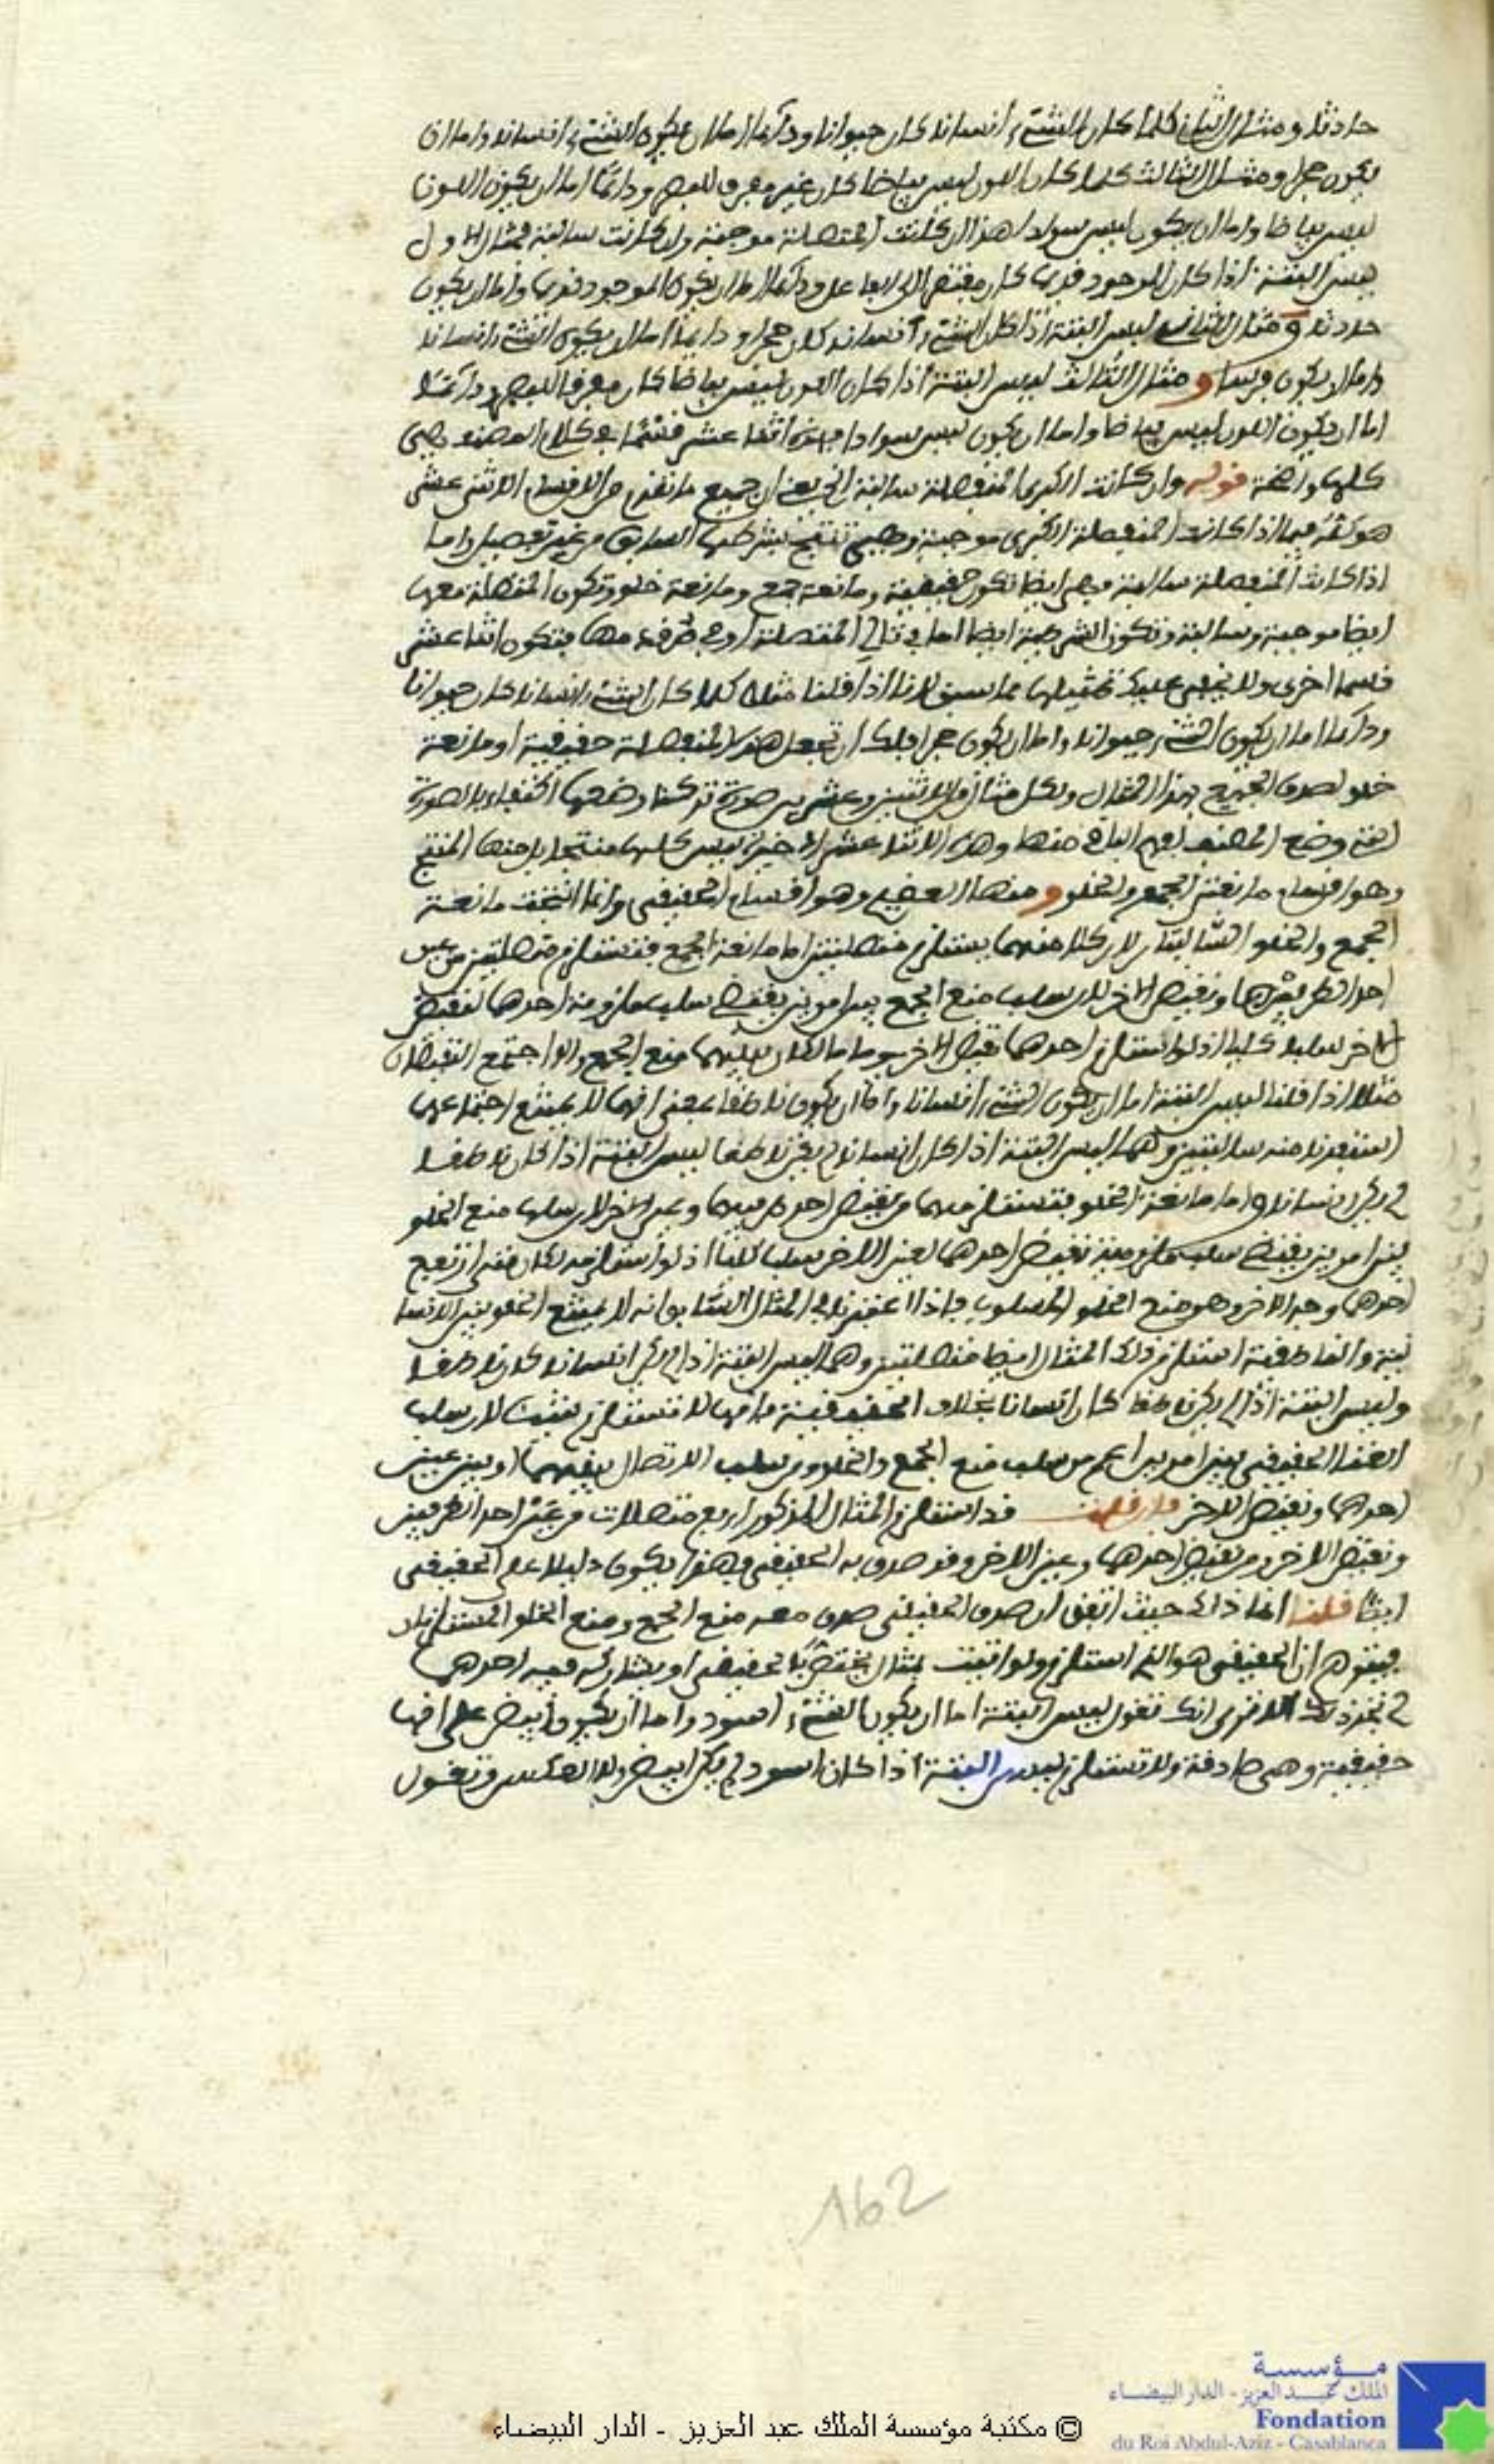 حادثا ومثال الثاني كلما كان الشيء انسانا كان حيوانا ودائما اما ان يكون الشيء انسانا واما ان
يكون حجرا ومثال الثالث كلما كان اللون ليس بياضا كان غير مفرق للبصر ودائما اما ان يكون اللون
ليس بياضا واما ان يكون ليس سوادا هذا ان كانت المتصلة موجبة وان كانت سالبة فمثال الاول
ليس البتة اذا كان الموجود قديما كان مفتقرا الى الفاعل ودائما اما ان يكون الموجود قديما واما ان يكون
حادثا ومثال الثاني ليس البتة اذا كان الشيء انسانا كان حجرا ودائما اما ان يكون الشيء انسانا
واما ان يكون فرسا ومثال الثالث ليس البتة اذا كان اللون ليس بياضا كان مفرقا للبصر ودائما
اما ان يكون اللون ليس بياضا واما ان يكون ليس سوادا فهذه اثنا عشر قسما في كلام المصنف وهي
كلها واضحة قوله وان كانت الكبرى المنفصلة سالبة الخ يعني ان جميع ما تقدم من الاقسام الاثني عشر
هو كله فيما اذا كانت المنفصلة الكبرى موجبة وهي تنتج بشرطها السابق من غير تفصيل واما
اذا كانت المنفصلة سالبة فهي ايضا تكون حقيقية ومانعة جمع ومانعة خلو وتكون المتصلة معها
ايضا موجبة وسالبة وتكون الشركة ايضا اما في تالي المتصلة او في طرف مقدمها فتكون اثنا عشر
قسما اخرى ولا يخفى عليك تمثيلها مما سبق لانا اذا قلنا مثلا كلما كان الشيء انسانا كان حيوانا
ودائما اما ان يكون الشيء حيوانا واما ان يكون حجرا فلك ان تجعل هذه المنفصلة حقيقية او مانعة
خلو لصدق الجميع بهذا المثال ولكل مثال من الاثنين وعشرين صورة تركنا وضعها اكتفاء بالصورة
التي وضع المصنف لفهم الباقي منها وهذه الاثنا عشر الاخيرة ليس كلها منتجا بل منها المنتج
وهو اقسام مانعتي الجمع والخلو ومنها العقيم وهو اقسام الحقيقي وانما انتجت مانعة
الجمع والخلو السالبتان لان كلا منهما يستلزم متصلتين اما مانعة الجمع فتستلزم متصلتين من عين
احد الطرفين ونقيض الاخر لان سلب منع الجمع بين امرين يقتضي سلب ملزومية احدهما لنقيض
الاخر سلبا كليا اذ لو استلزم احدهما نقيض الاخر يوما ما لكان بينهما منع الجمع والا اجتمع النقيضان
مثلا اذا قلنا ليس البتة اما ان يكون الشيء انسانا واما ان يكون ناطقا بمعنى انهما لا يمتنع اجتماعهما
استفدنا منه سالبتين وهما ليس البتة اذا كان انسانا لم يكن ناطقا ليس البتة اذا كان ناطقا
لم يكن انسانا واما مانعة الخلو فتستلزمهما من نقيض احد طرفيها وعين الاخر لان سلب منع الخلو
بين امرين يقتضي سلب ملزومية نقيض احدهما لعين الاخر سلبا كليا اذ لو استلزمه لكان متى ارتفع
احدهما وجد الاخر وهو منع الخلو المسلوب فاذا اعتبرنا في المثال السابق انه لا يمتنع الخلو بين الانسا
نية والناطقية استلزم ذلك المثال ايضا متصلتين وهما ليس البتة اذا لم يكن انسانا كان ناطقا
وليس البتة اذا لم يكن ناطقا كان انسانا بخلاف الحقيقية فانها لا تستلزم شيئا لان سلب
العناد الحقيقي بين امرين اعم من سلب منع الجمع والخلو ومن سلب الاتصال بينهما او بين عين
احدهما ونقيض الاخر فان قلت قد استلزم المثال المذكور اربع متصلات من عين احد الطرفين
ونقيض الاخر ومن نقيض احدهما وعين الاخر وقد صدق به الحقيقي فهذا يكون دليلا على الحقيقي
ايضا قلنا انما ذلك حيث اتفق ان صدق الحقيقي صدق معه منع الجمع ومنع الخلو المستلزمان
فيتوهم ان الحقيقي هو الذي استلزم ولو اتيت بمثال يختص بالحقيقي او يشاركه فيه احدهما
لم تجد ذلك الا ترى انك تقول ليس البتة اما ان يكون الشيء اسود واما ان يكون ابيض على انها
حقيقية وهي صادقة ولا تستلزم ليس البتة اذا كان اسود لم يكن ابيض ولا العكس وتقول
162
مؤسسة
الملك عبد العزيز - الدار البيضاء
Fondation
du Roi Abdul-Aziz - Casablanca
© مكتبة مؤسسة الملك عبد العزيز - الدار البيضاء